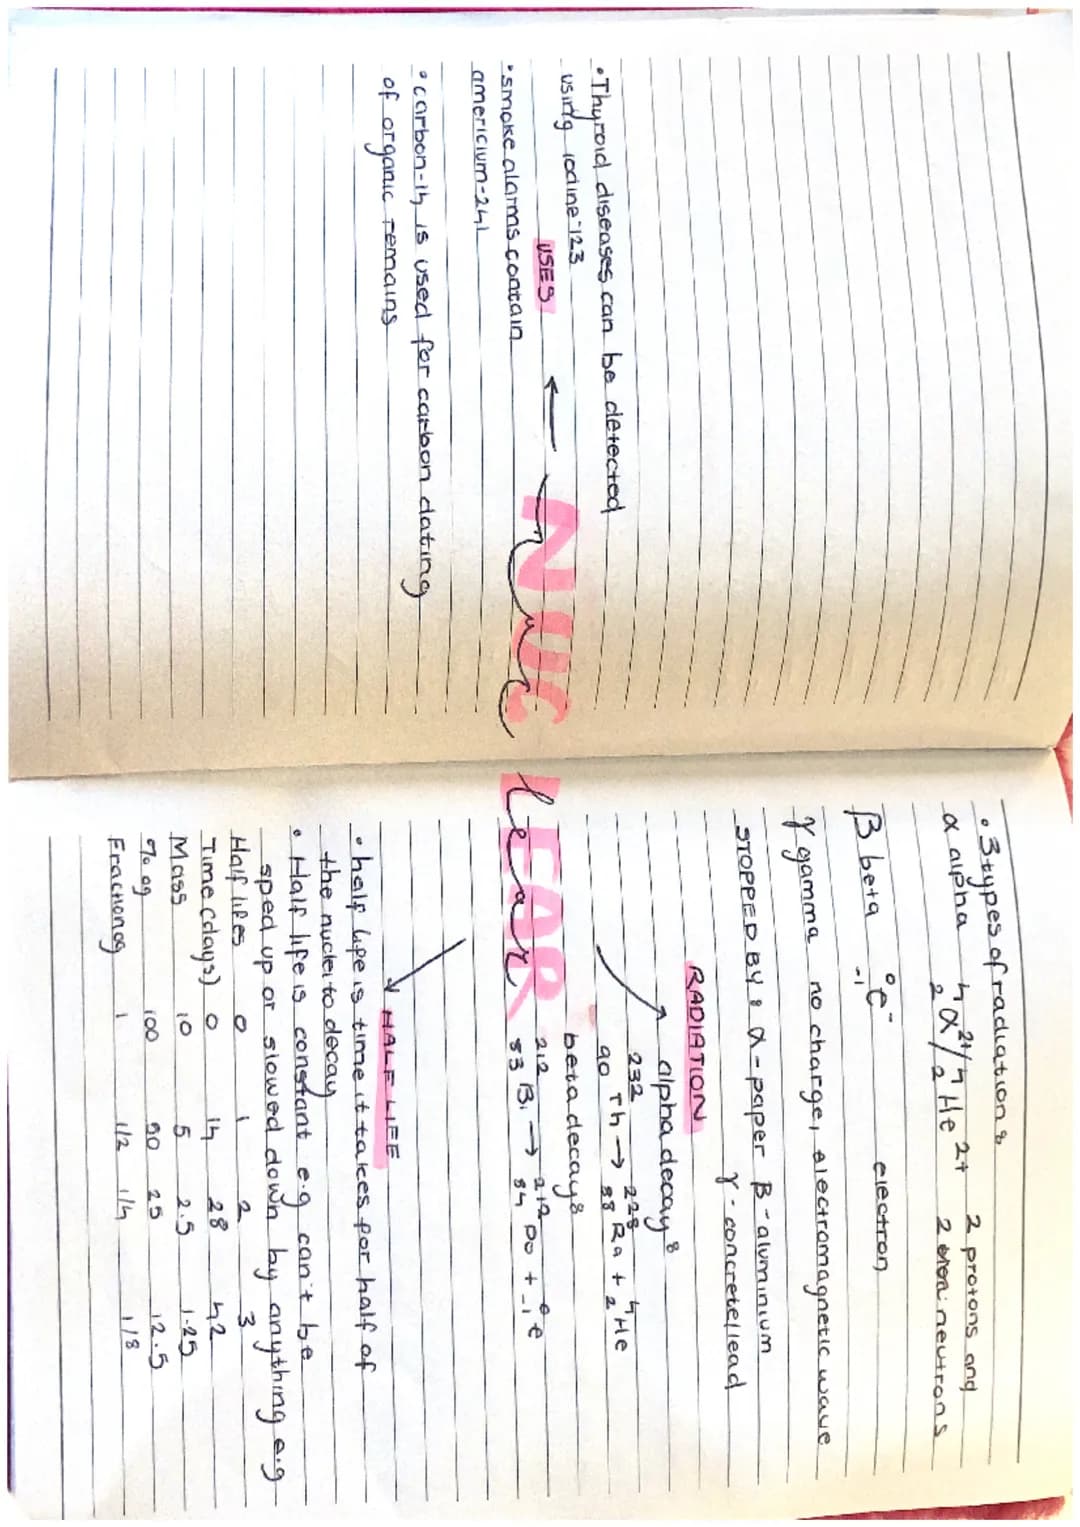 NUCLEAR
nuclear
USES
• Thyroid diseases can be detected
using iodine-123
• smoke alarms contain
americium-241
• carbon-14 is used for carbon dating
of organic remains
• 3 types of radiation:
α alpha ⁴₂α²⁺/⁴₂He²⁺ 2 protons and
2 neutrons
β beta ⁰₋₁e⁻ electron
γ gamma no charge, electromagnetic wave
STOPPED BY: α - paper β - aluminium
γ - concrete/lead
RADIATION
alpha decay:
²³²₉₀Th → ²²⁸₈₈Ra + ⁴₂He
beta decay:
²¹²₈₃Bi → ²¹²₈₄Po + ⁰₋₁e
HALF LIFE
• half life is time it takes for half of
the nuclei to decay
• Half life is constant e.g can't be
sped up or slowed down by anything e.g
Half lifes 0 1 2 3
Time (days) 0 14 28 42
Mass 10 5 2.5 1.25
% og 100 50 25 12.5
Fraction og 1 1/2 1/4 1/8